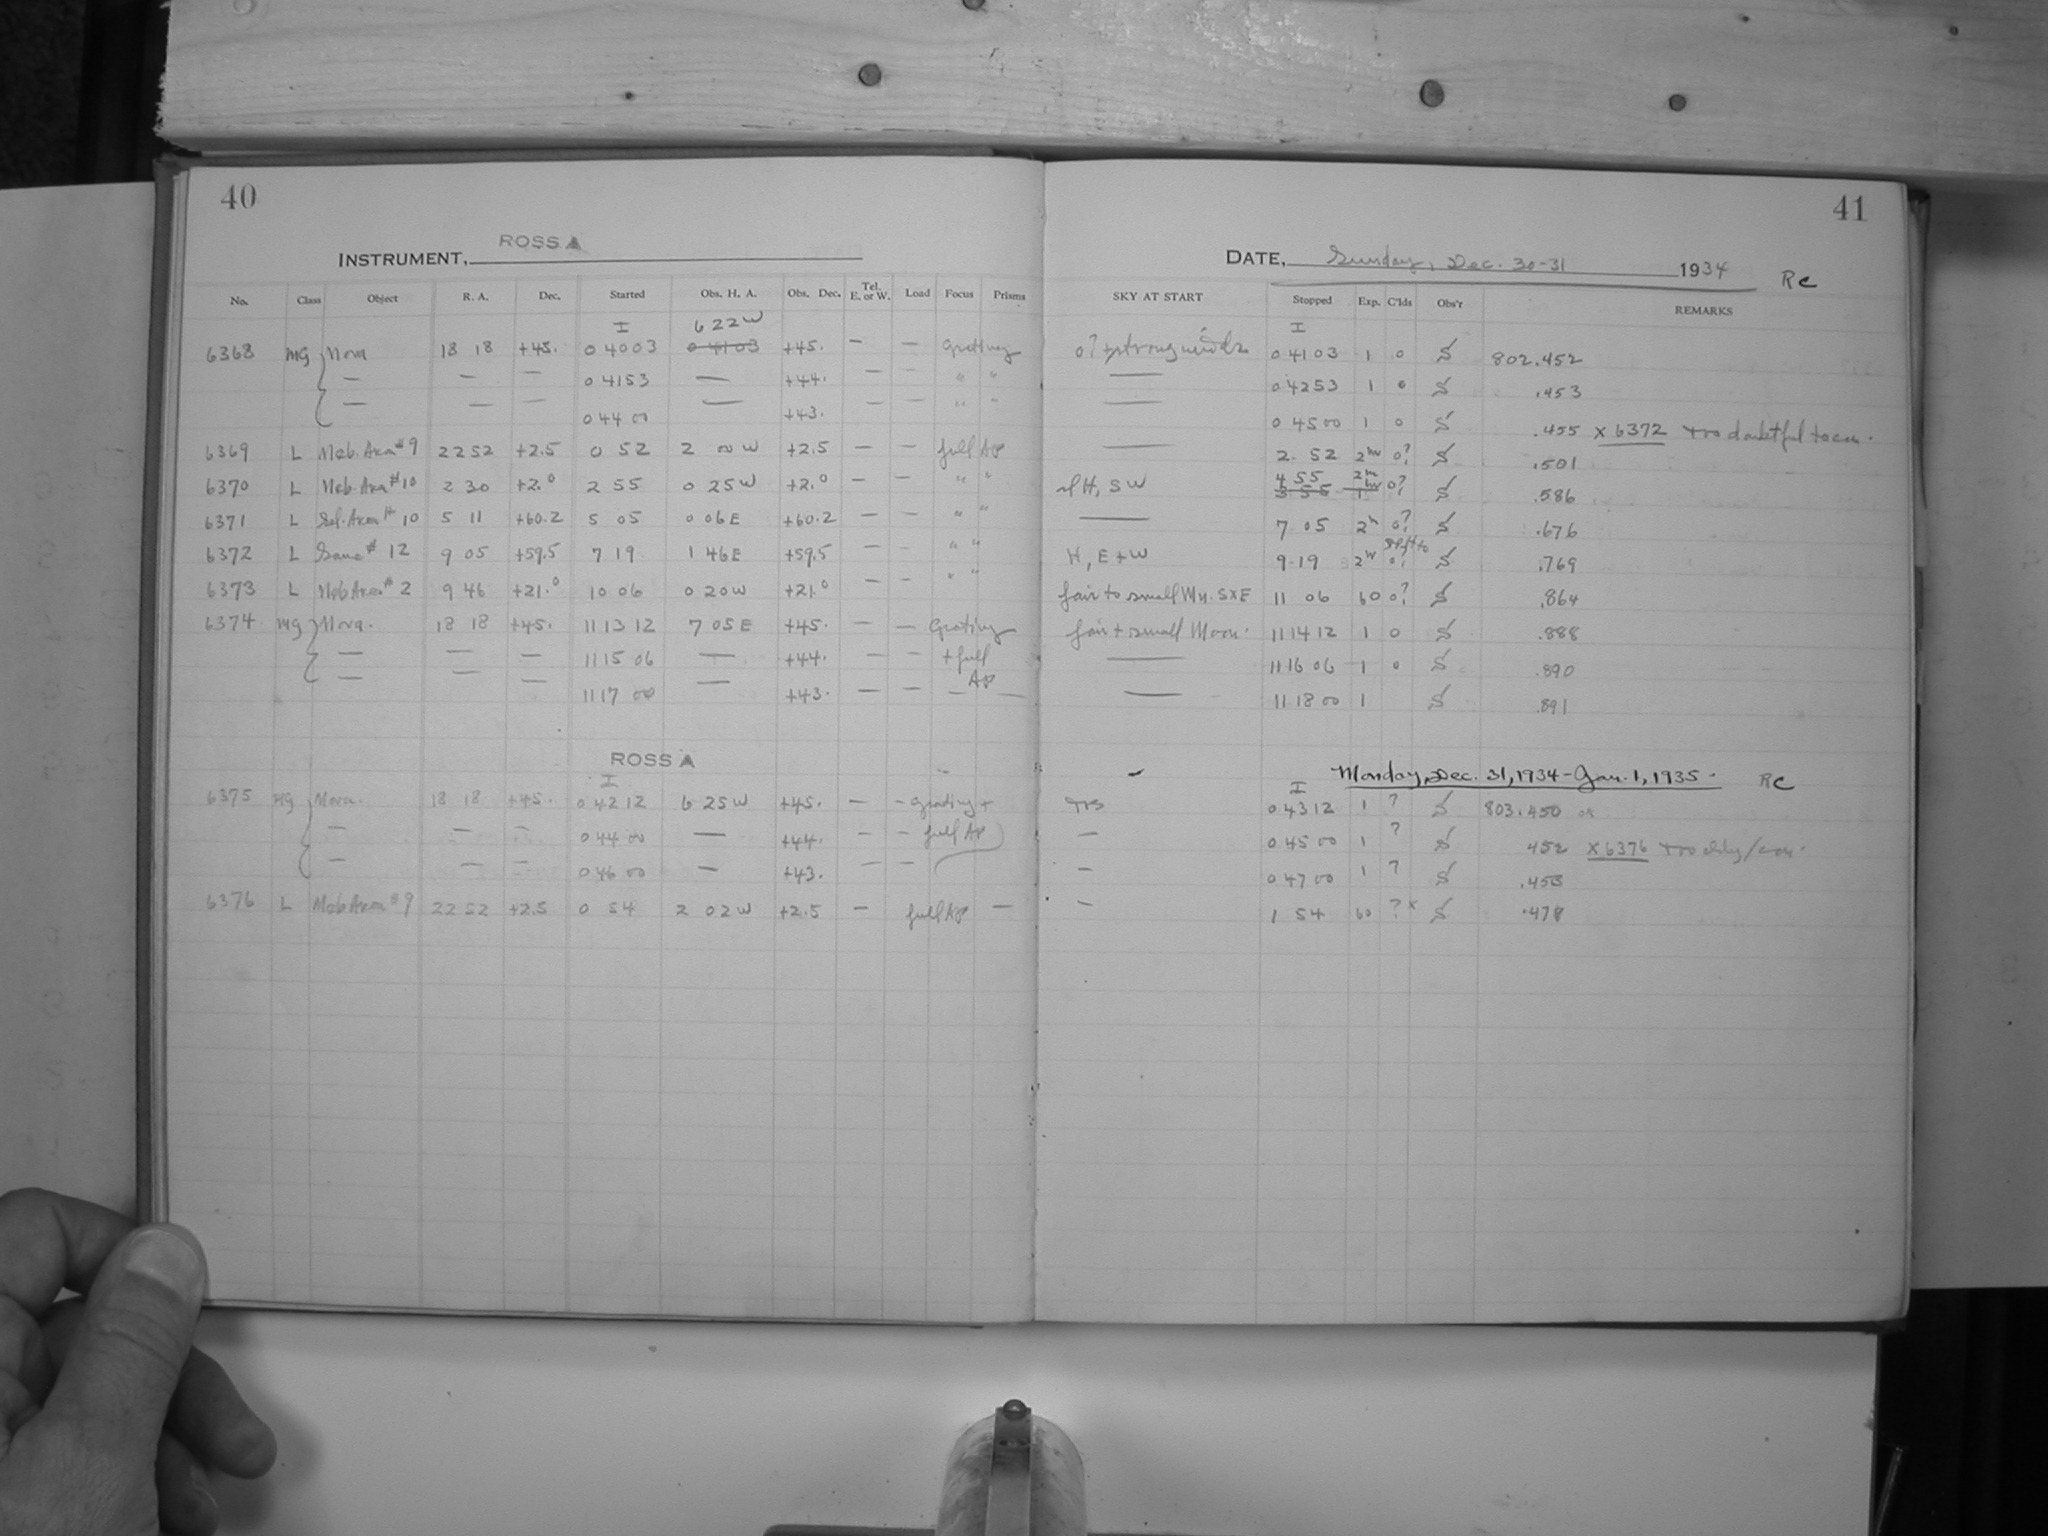 40
ROSS A
INSTRUMENT,
No. Class Object R. A. Dec. Started Obs. H. A. Obs. Dec. Tel. E. or W. Load Focus Prisms
I 6 22 W
6368 MG Nova 18 18 +45. 0 40 03 0 41 03 +45. — — Grating
— — — 0 41 53 — +44. — — " "
— — — 0 44 00 — +43. — — " "
6369 L Neb. Area #9 22 52 +2.5 0 52 2 00 W +2.5 — — full Ap
6370 L Neb. Area #10 2 30 +2.0 2 55 0 25 W +2.0 — — " "
6371 L Sel. Area # 10 5 11 +60.2 5 05 0 06 E +60.2 — — " "
6372 L Same # 12 9 05 +59.5 7 19 1 46 E +59.5 — — " "
6373 L Neb Area # 2 9 46 +21.0 10 06 0 20 W +21.0 — — " "
6374 MG Nova. 18 18 +45. 11 13 12 7 05 E +45. — — Grating
— — — 11 15 06 — +44. — — + full
— — — 11 17 00 — +43. — — Ap —
ROSS A
I
6375 MG Nova. 18 18 +45. 0 42 12 6 25 W +45. — — grating +
— — — 0 44 00 — +44. — — full Ap
— — — 0 46 00 — +43. — —
6376 L Neb Area #9 22 52 +2.5 0 54 2 02 W +2.5 — full Ap —
41
DATE, Sunday, Dec. 30-31 1934 RC
SKY AT START Stopped Exp. C'lds Obs'r REMARKS
I
0? + strong winds 0 41 03 1 0 S 802.452
— 0 42 53 1 0 S .453
— 0 45 00 1 0 S .455 X 6372 too doubtful to con.
— 2 52 2hr 0? S .501
H, SW 4 55 3 55 2hr 1 0? S .586
— 7 05 2h 0? S .676
H, E + W 9 19 2hr 0? S .769
fair to small Mn. S×E 11 06 60 0? S .864
fair + small Moon. 11 14 12 1 0 S .888
— 11 16 06 1 0 S .890
— 11 18 00 1 S .891
Monday, Dec. 31, 1934 - Jan. 1, 1935. RC
I
0 43 12 1 ? S 803.450
— 0 45 00 1 ? S 452 X 6376 too cldy/con.
— 0 47 00 1 ? S .453
— 1 54 60 ? x S .478